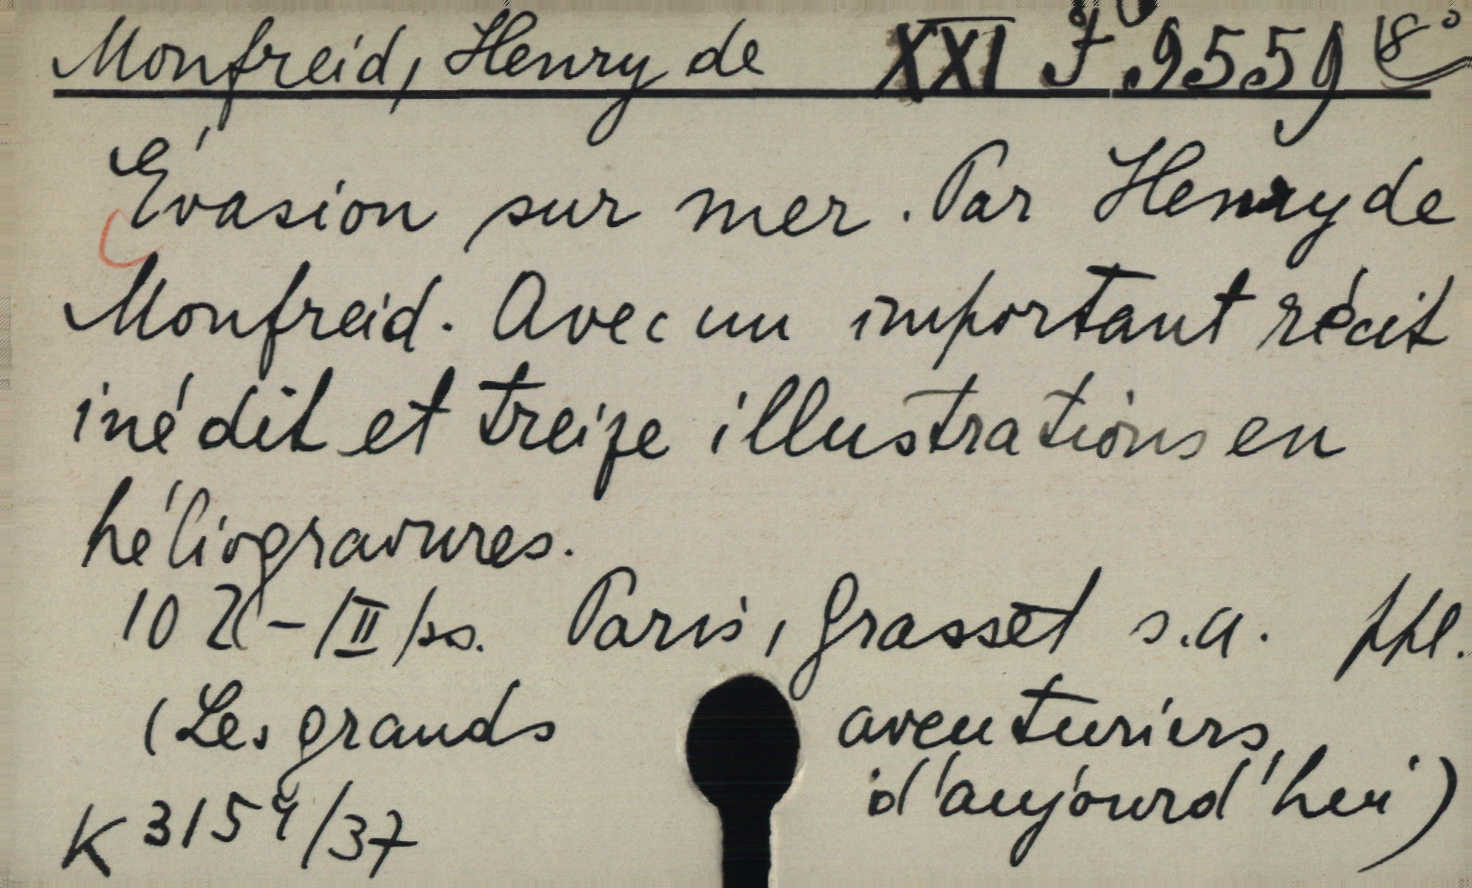 Monfreid, Henry de XXI F 9559 8°
Évasion sur mer. Par Henry de
Monfreid. Avec un important récit
inédit et treize illustrations en
héliogravures.
102 - /II/ss. Paris, Grasset s.a. ppl.
(Les grands aventuriers
d'aujourd'hui)
K 3154/37